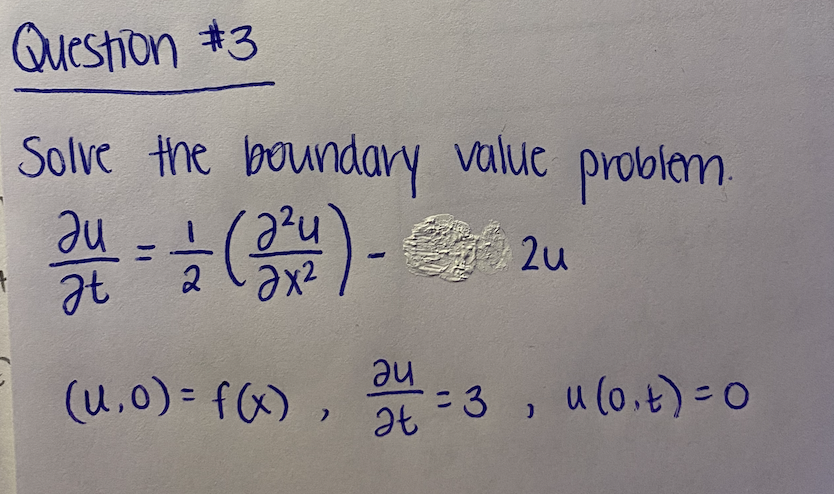 Question #3
Solve the boundary value problem.
∂u/∂t = 1/2 (∂²u/∂x²) - 2u
(u,0) = f(x) , ∂u/∂t = 3 , u(0,t) = 0